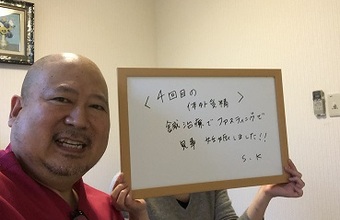 〈4回目の
体外受精〉
鍼治療でファスティングで
見事 妊娠しました!!
S.K